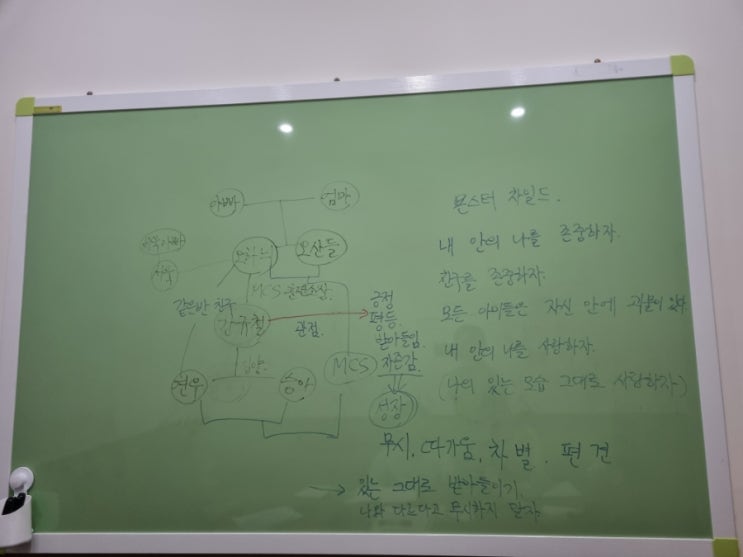 아빠
엄마
오산들
MCS
같은반 친구
관점
긍정
평등
받아들임
자존감
성장
입양
MCS
현우
승아
몬스터 차일드.
내 안의 나를 존중하자.
친구를 존중하자.
모든 아이들은 자신 안에 괴물이 있다.
내 안의 나를 사랑하자.
(나의 있는 모습 그대로 사랑하자)
무시, 따가움, 차별. 편견
→ 있는 그대로 받아들이기.
나와 다르다고 무시하지 말자.